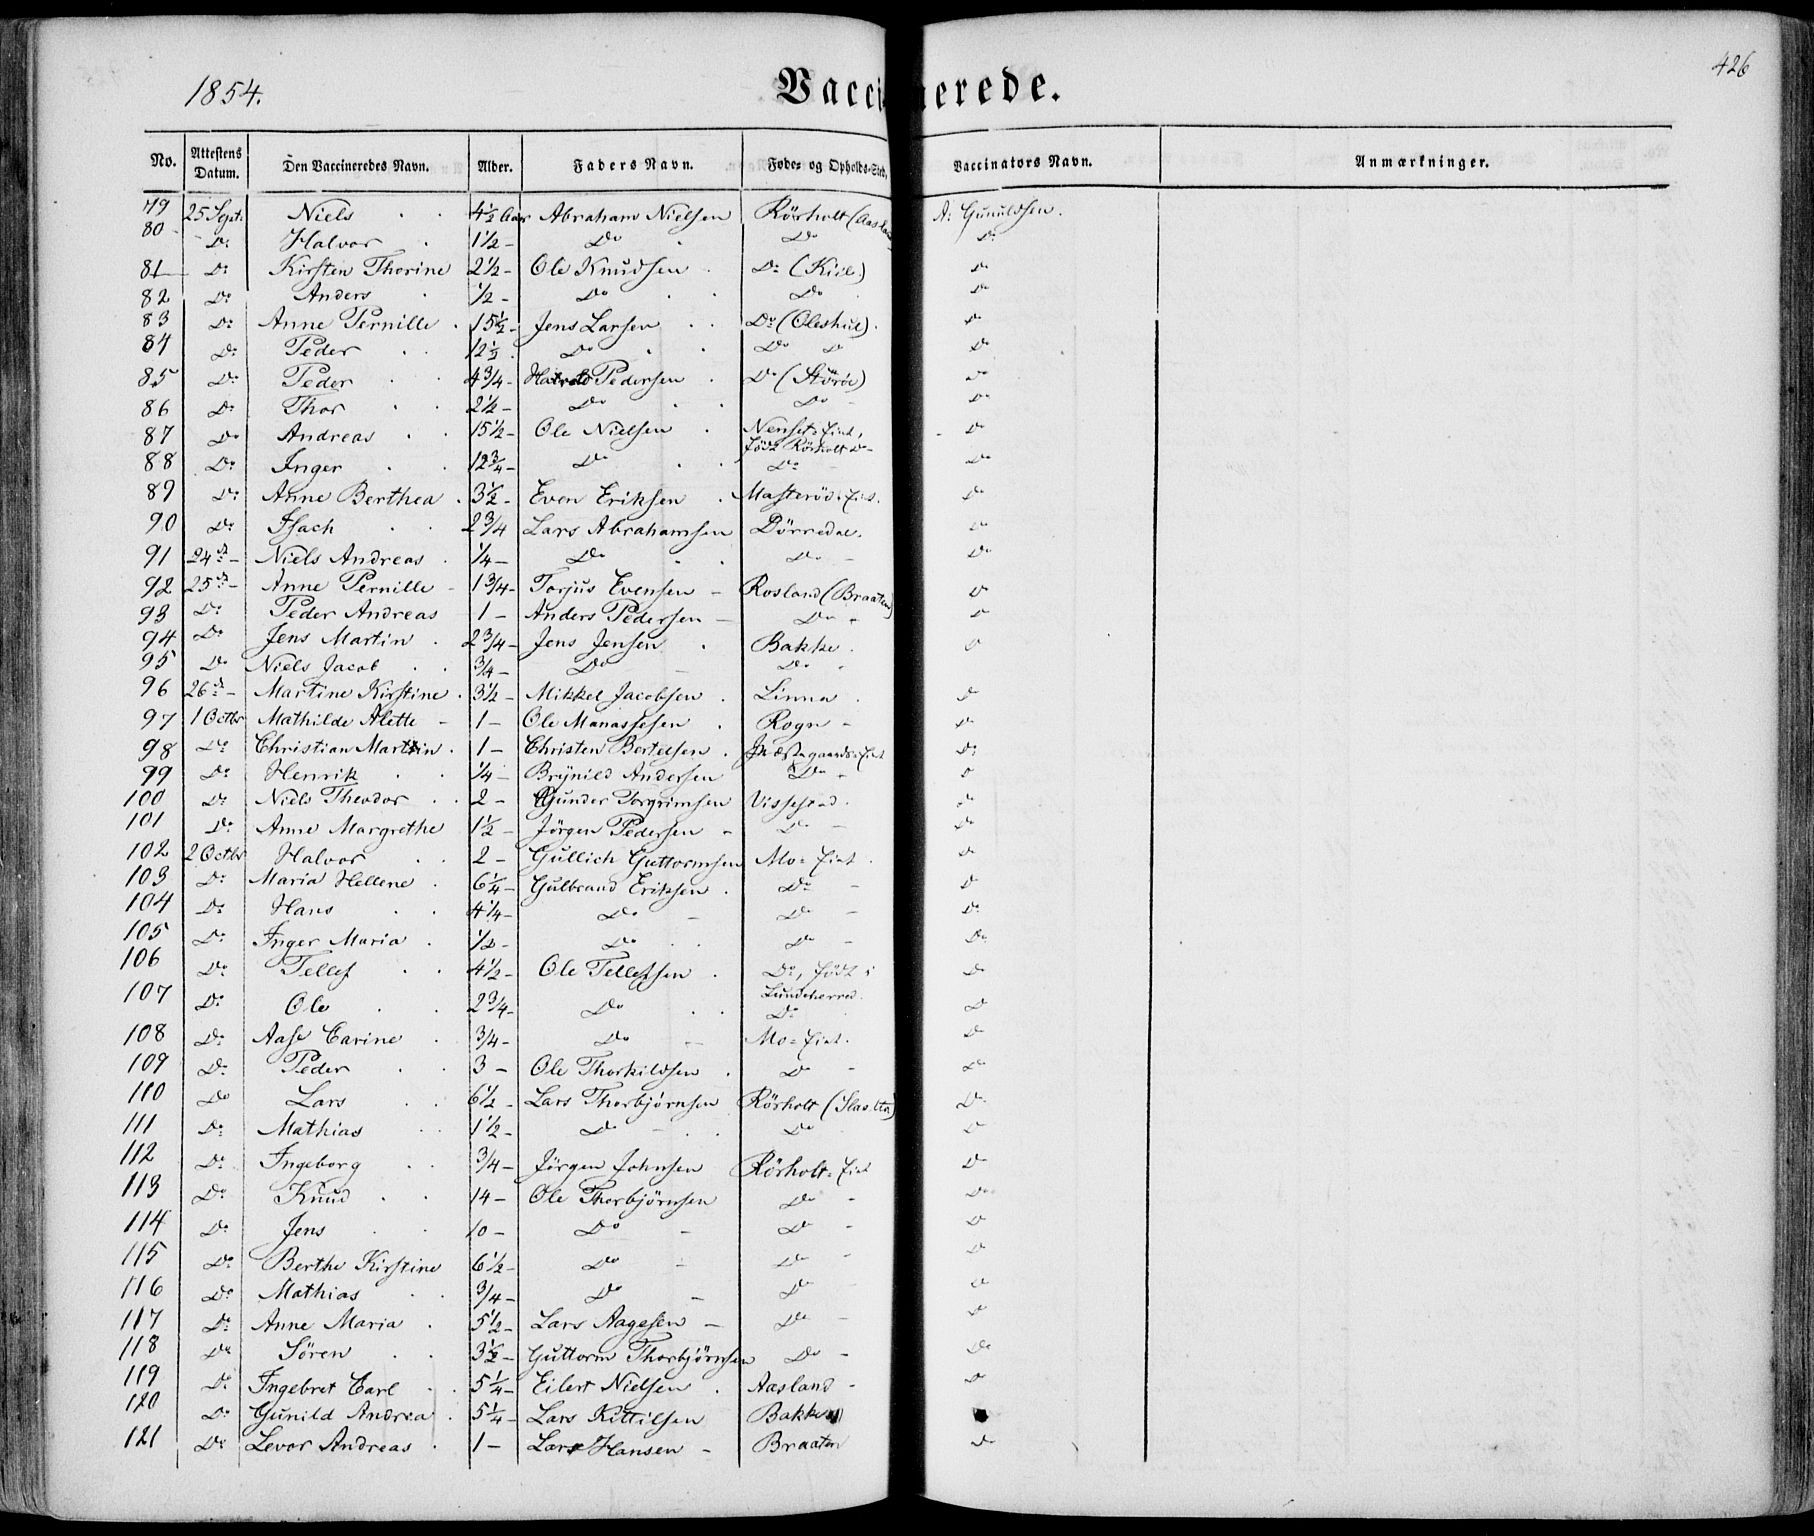 1854. Vaccinerede. 426
No. Attestens Datum. Den Vaccineredes Navn. Alder. Faders Navn. Føde- og Opholds-Sted. Vaccinators Navn. Anmærkninger.
79 25 Sept. Niels 4½ Aar Abraham Nielsen Rörholt (Aasland A. Gunuldsen.
80 Do Halvor 1½ - Do Do Do
81 Do Kirsten Thorine 2½ - Ole Knudsen Do (Kiil.) Do
82 Do Anders ½ - Do Do Do
83 Do Anne Pernille 15½ - Jens Larsen Do (Oleshul). Do
84 Do Peder 12½ Do Do Do Do
85 Do Peder 4¾ - Pedersen Do (Störöe) Do
86 Do Thor 2½ - Do Do Do
87 Do Andreas 15½ - Ole Nielsen Nenset = Eiet, Do
född Rörholt Do -
88 Do Inger 12¾ - Do Do Do
89 Do Anne Berthea 3½ - Even Eriksen Masteröd = Eiet. Do
90 Do Isach 2¾ Lars Abrahamsen Dörredal. Do
91 24de - Niels Andreas ¼ - Do Do - Do
92 25de - Anne Pernille - 1¾ - Torjus Evensen - Rosland (Braaten) Do
93 Do Peder Andreas 1 - Anders Pedersen - Do Do
94 Do Jens Martin 2¾ - Jens Jensen Bakke. Do
95 Do Niels Jacob ¾ - Do Do
96 26de - Martine Kirstine 3½ - Mikkel Jacobsen Linna Do
97 1 Octbr Mathilde Alette - 1 - Ole Manassesen Rogn - Do
98 Do Christian Martin 1 - Christen Bertelsen Præstegaards = Eiet Do
99 Do Henrik ¼ - Brynild Andersen Do Do
100 Do Niels Theodor 2 - Gunder Torgrimsen Vissestad. Do
101 Do Anne Margrethe 1½ - Jörgen Pedersen - Do - Do
102 2 Octbr Halvor 2 - Gullich Guttormsen Mo = Eiet. Do
103 Do Maria Hellene 6¼ - Gulbrand Eriksen Do - Do
104 Do Hans 4¼ - Do - Do - Do
105 Do Inger Maria ½ - Do Do - Do
106 Do Tellef 4½ - Ole Tellefsen Do, Född i Do
Lundeherred.
107 Do Ole 2¾ - Do Do Do
108 Do Aase Carine ¾ - Do - Mo = Eiet. Do
109 Do Peder 3 - Ole Thorkildsen Do - Do
110 Do Lars 6½ - Lars Thorbjørnsen Rörholt ( Do
111 Do Mathias 1½ - Do Do Do
112 Do Ingeborg ¾ - Jörgen Johnsen Rörholt = Eiet Do
113 Do Knud 14 - Ole Thorbjörnsen Do - Do
114 Do Jens 10 - Do - Do - Do
115 Do Berthe Kirstine 6½ - Do - Do - Do
116 Do Mathias ¾ - Do - Do Do
117 Do Anne Maria 5½ - Lars Aagesen - Do - Do
118 Do Sören 3½ - Guttorm Thorbjörnsen Do - Do
119 Do Ingebret Carl 5¼ - Eilert Nielsen Aasland - Do
120 Do Gunild Andrea 5¼ - Lars Kittilsen Bakken
121 Do Levor Andreas 1 - Lars Hansen - Braaten Do